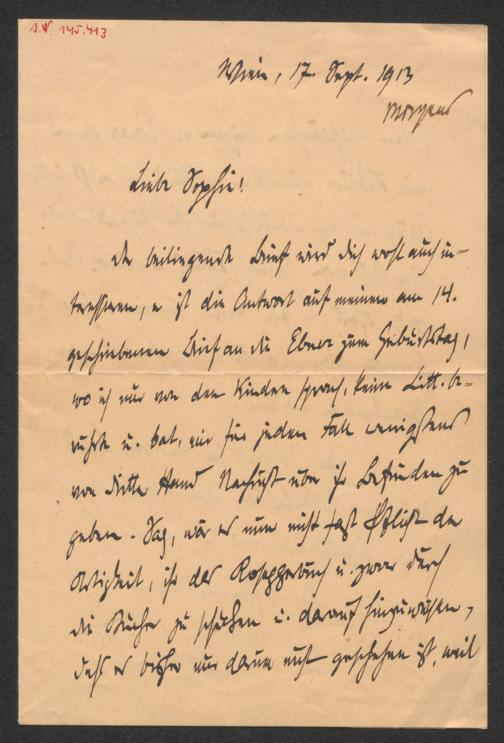 I.N. 145.413
Wien, 17. Sept. 1913
Morgens
Liebe Sophie!
Der beiliegende Brief wird dich wohl auch in-
teressieren, er ist die Antwort auf meinen am 14.
geschriebenen Brief an die Ebner zum Geburtstag,
wo ich nur von den Kindern sprach, keine Litt. be-
rührte u. bat, mir für jeden Fall wenigstens
von dritter Hand Nachricht über ihr Befinden zu
geben. Sag, wär es nun nicht fast Pflicht der
Artigkeit, ihr das Roseggerbuch u. zwar durch
die Bücher zu schicken u. darauf hinzuweisen,
daß es bisher nur darum nicht geschehen ist, weil